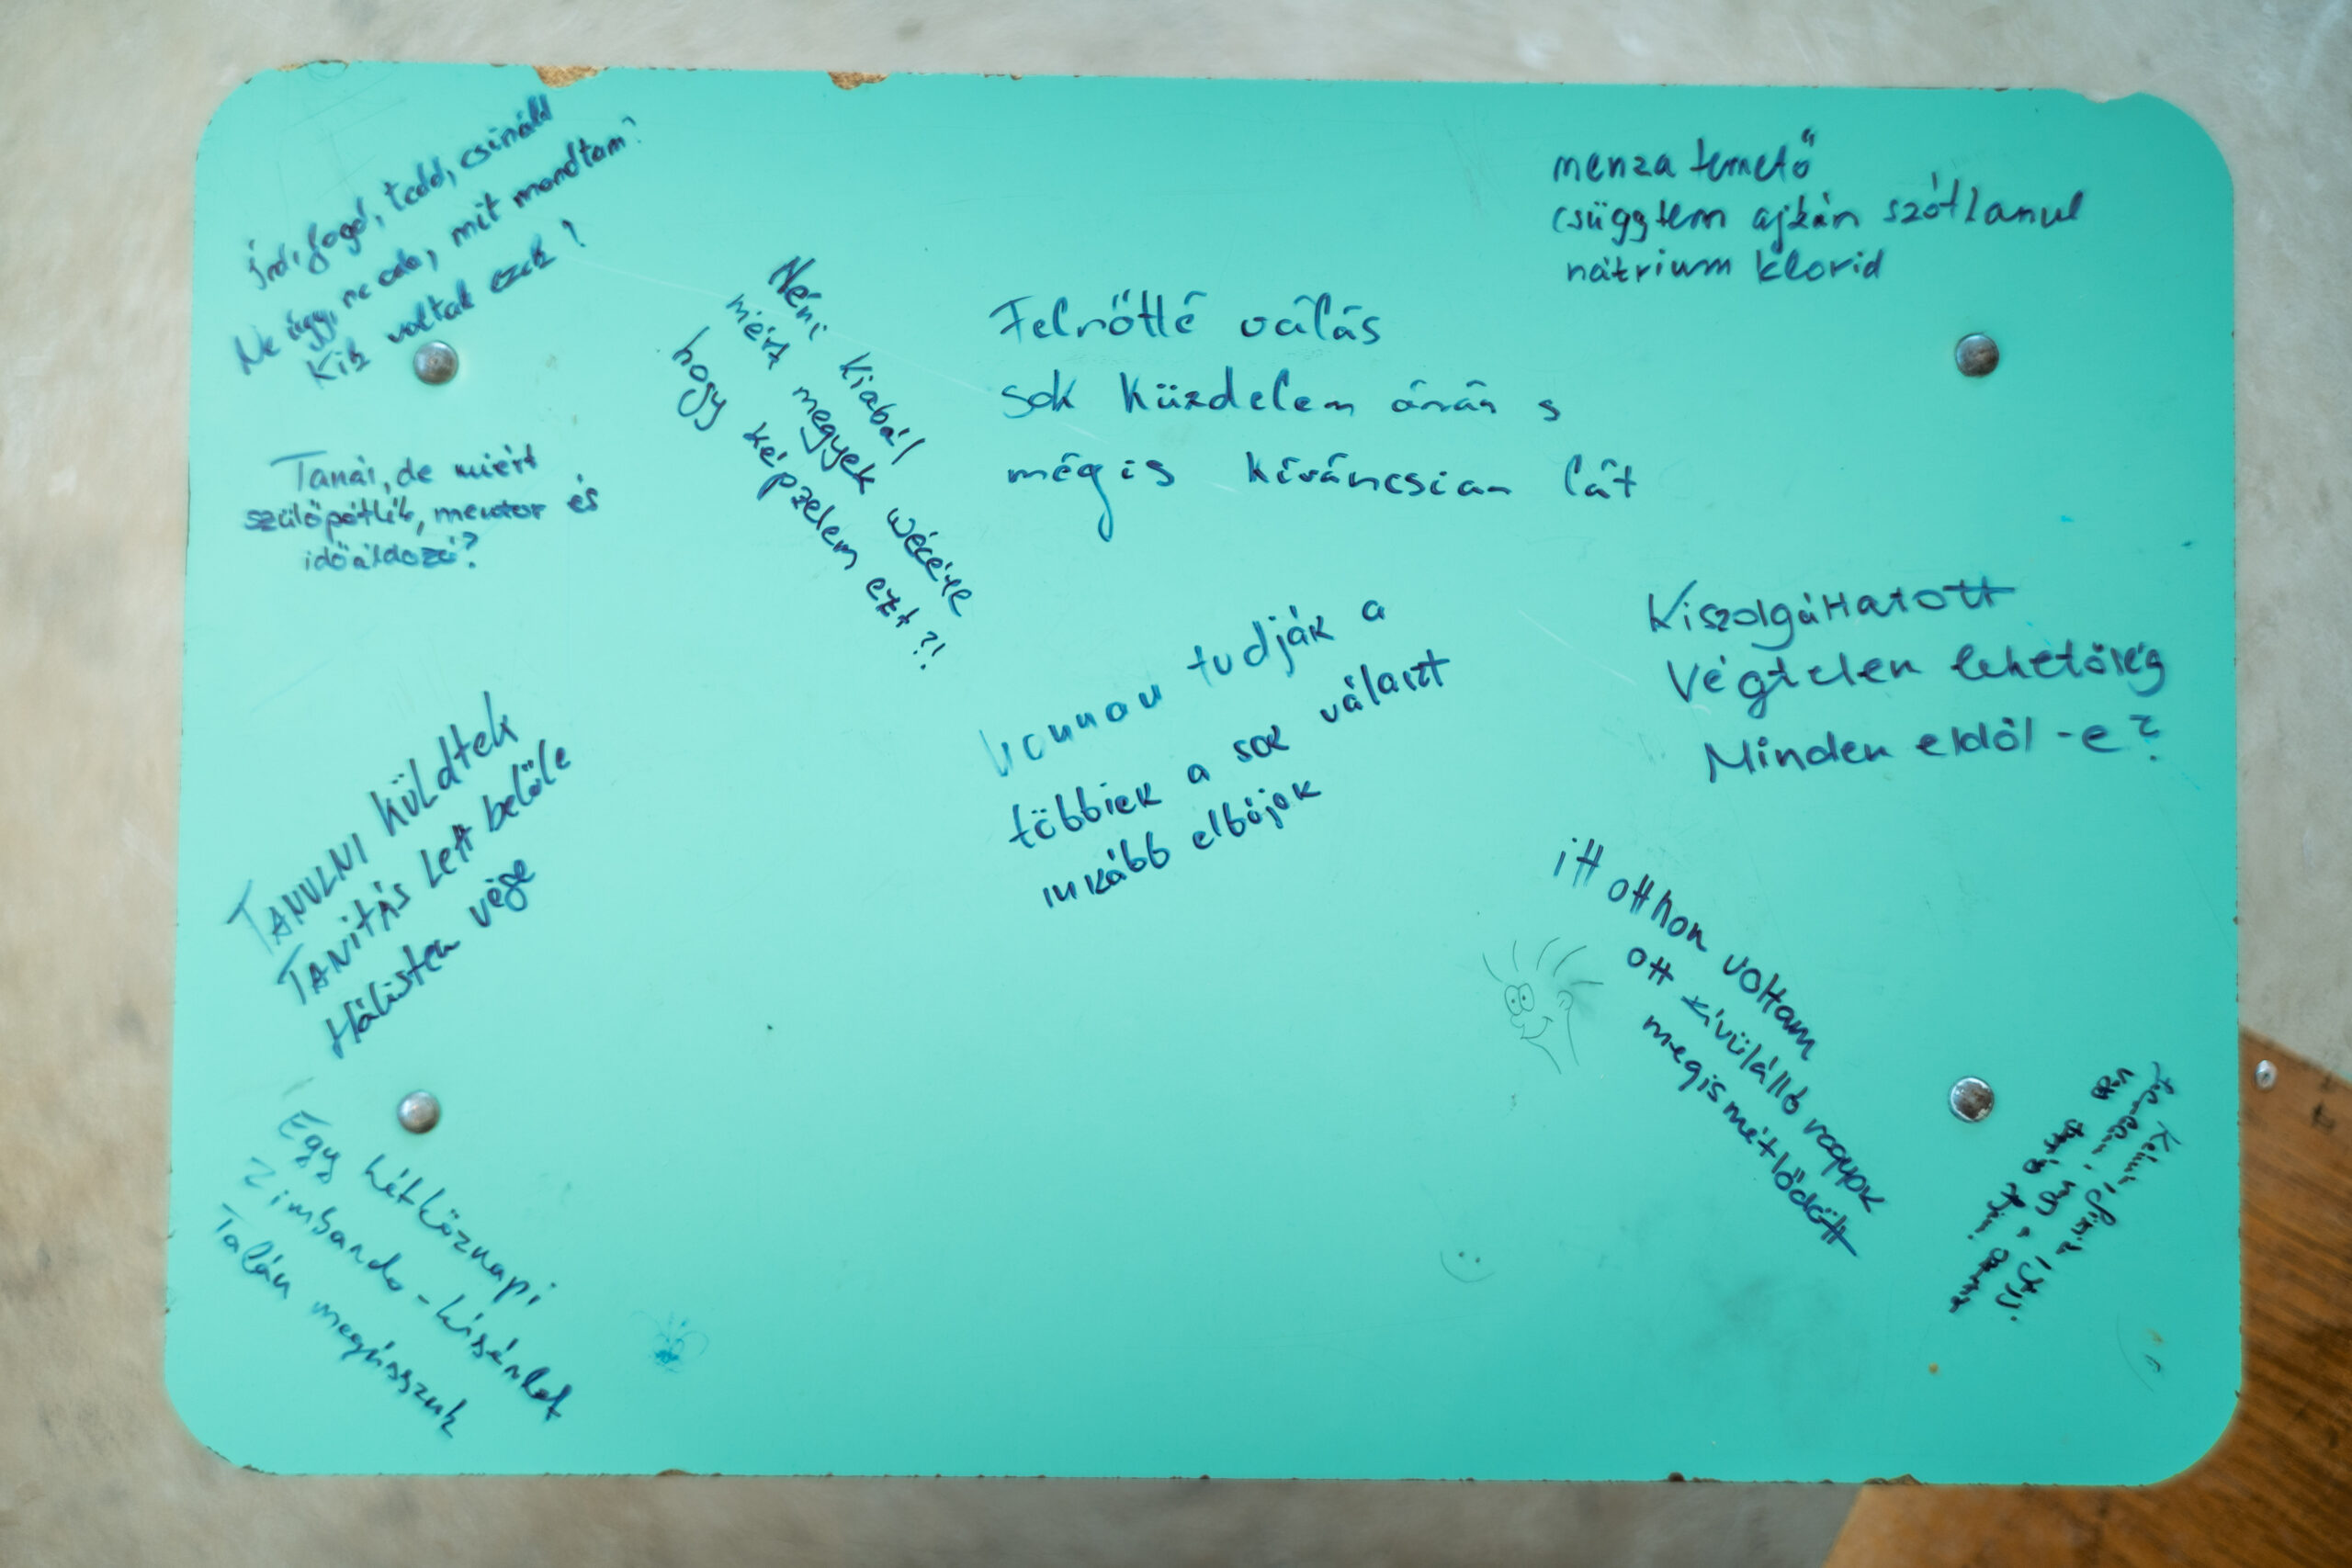 Írd, fogd, tedd, csináld
Ne úgy, ne oda, mit mondtam?
Kik voltak ezek?
menza temető
csüggtem ajkán szótlanul
nátrium klorid
Néni kiabál
miért megyek wécére
hogy képzelem ezt?!
Felnőtté válás
sok küzdelem árán s
mégis kíváncsian lát
Tanár, de miért
szülőpótlék, mentor és
időáldozó?
honnan tudják a
többiek a sok választ
inkább elbújok
Kiszolgáltatott
Végtelen lehetőség
Minden eldől-e?
TANULNI küldtek
TANÍTÁS lett belőle
Hálisten vége
itt otthon voltam
ott kívülálló vagyok
megismétlődött
Egy hétköznapi
Zimbardo-kísérlet
Talán megússzuk